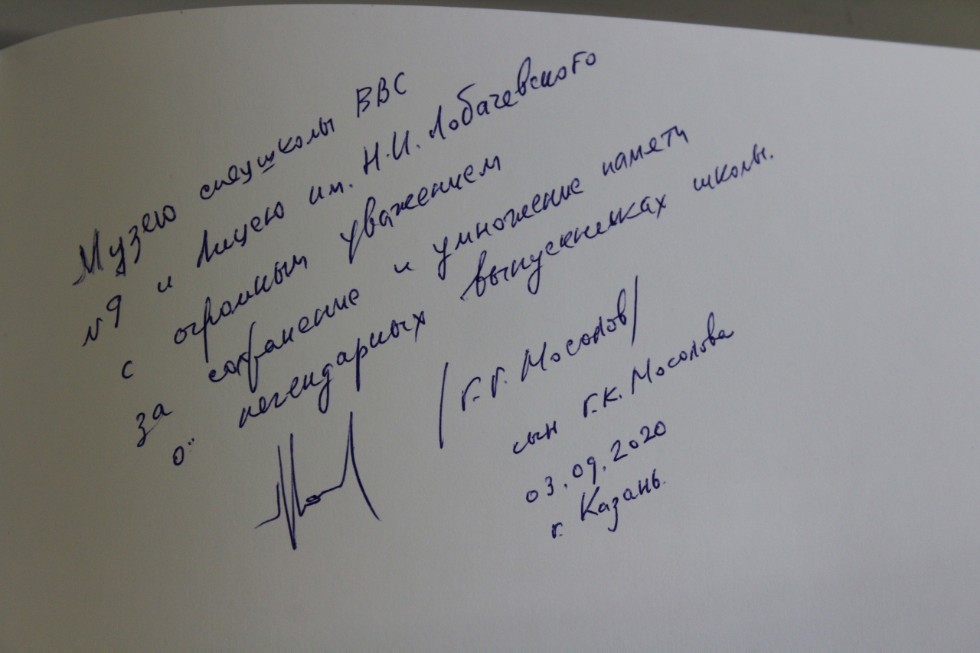 Музею спецшколы ВВС
№9 и Лицею им. Н.И. Лобачевского
с огромным уважением
за сохранение и умножение памяти
о легендарных выпускниках школы.
/Г.Г. Мосолов/
сын Г.К. Мосолова
03.09.2020
г. Казань.